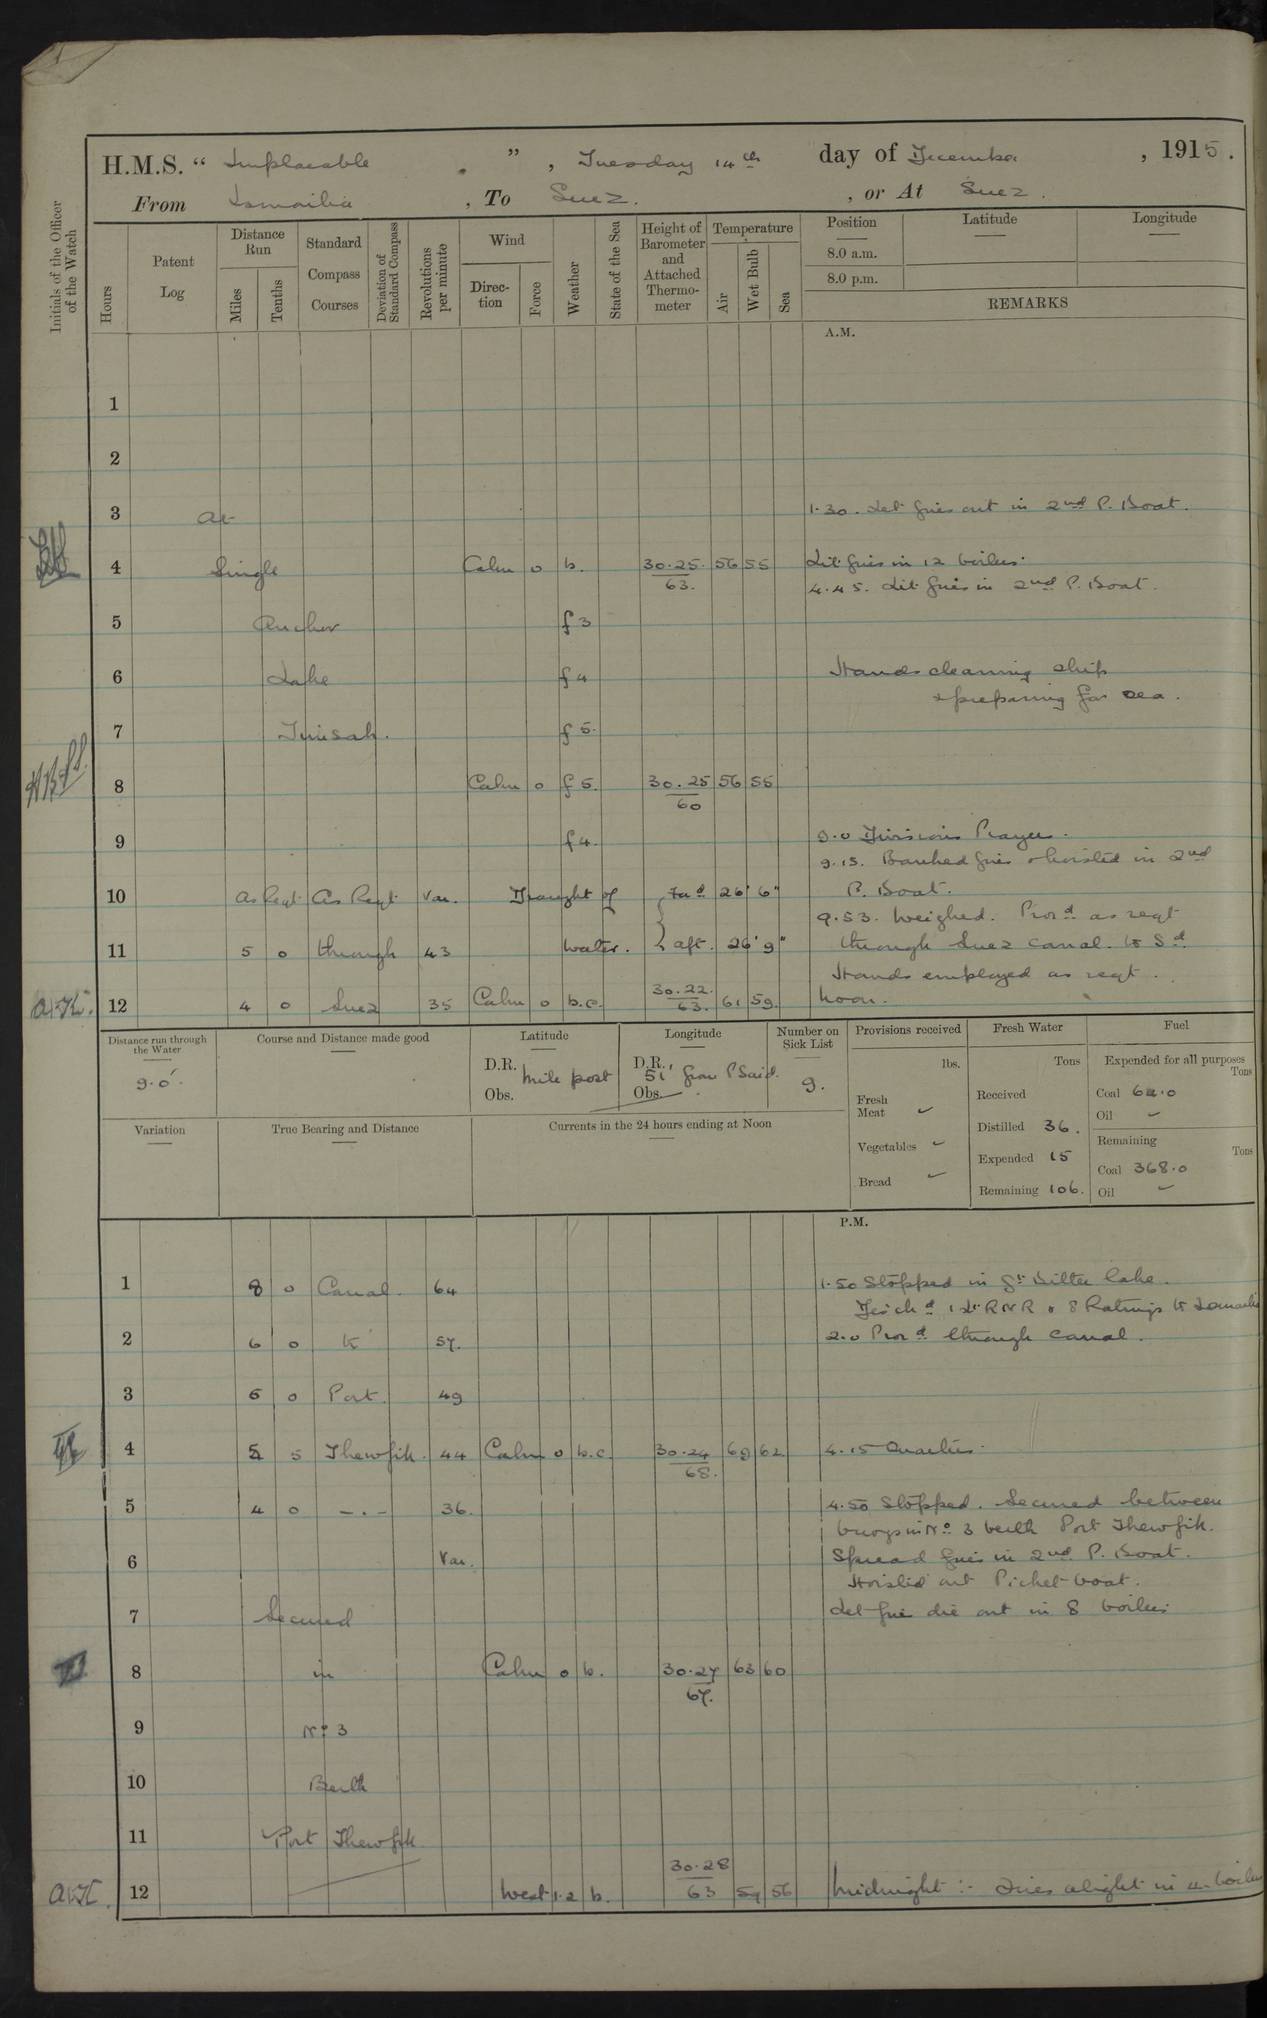 H.M.S. “ Implacable ” , Tuesday 14th day of December , 1915 .
From Ismailia , To Suez. , or At Suez .
Initials of the Officer of the Watch
Hours
Patent Log
Distance Run
Miles
Tenths
Standard Compass Courses
Deviation of Standard Compass
Revolutions per minute
Wind
Direction
Force
Weather
State of the Sea
Height of Barometer and Attached Thermometer
Temperature
Air
Wet Bulb
Sea
Position Latitude Longitude
8.0 a.m.
8.0 p.m.
REMARKS
A.M.
1
2
3 At 1.30. Let fires out in 2nd P. Boat.
4 Single Calm 0 b. 30.25. 63. 56 55 Lit fires in 12 boilers.
4.45. Lit fires in 2nd P. Boat.
5 Anchor f 3
6 Lake f 4 Hands cleaning ship
& preparing for sea.
7 Timsah. f 5.
8 Calm 0 f 5. 30.25 60 56 55
9 f 4. 9.0 Divisions Prayers.
9.15. Banked fires & hoisted in 2nd
10 As Reqt. As Reqt Var. Draught of { Ford 26' 6" P. Boat.
9.53. Weighed. Procd as reqt
11 5 0 through 43 water. { aft. 26' 9" through Suez Canal. to Sd
Hands employed as reqt.
12 4 0 Suez 35 Calm 0 b.c. 30.22. 63. 61 59. Noon.
Distance run through the Water
9.0'
Course and Distance made good
Latitude
D.R. mile post
Obs.
Longitude
D.R. 51' from P Said.
Obs.
Number on Sick List
9.
Provisions received
lbs.
Fresh Meat ✓
Vegetables ✓
Bread ✓
Fresh Water
Tons
Received
Distilled 36.
Expended 15
Remaining 106.
Fuel
Expended for all purposes
Tons
Coal 62.0
Oil ✓
Remaining
Tons
Coal 368.0
Oil ✓
Variation
True Bearing and Distance
Currents in the 24 hours ending at Noon
P.M.
1 8 0 Canal. 64 1.50 Stopped in Gt Bitter Lake.
Disch d 1 Lt RNR & 8 Ratings to Ismailia
2 6 0 to 57. 2.0 Proc d through Canal.
3 6 0 Port. 49
4 5 5 Thewfik. 44 Calm 0 b.c. 30.24 68. 69 62 4.15 Quarters.
5 4 0 – . – 36. 4.50 Stopped. Secured between
buoys in No 3 berth Port Thewfik.
6 Var. Spread fires in 2nd P. Boat.
Hoisted out Picket boat.
7 Secured Let fires die out in 8 boilers
8 in Calm 0 b. 30.27 67. 63 60
9 No 3
10 Berth
11 Port Thewfik
12 West 1.2 b. 30.28 63 59 56 Midnight :- Fires alight in 4 boilers